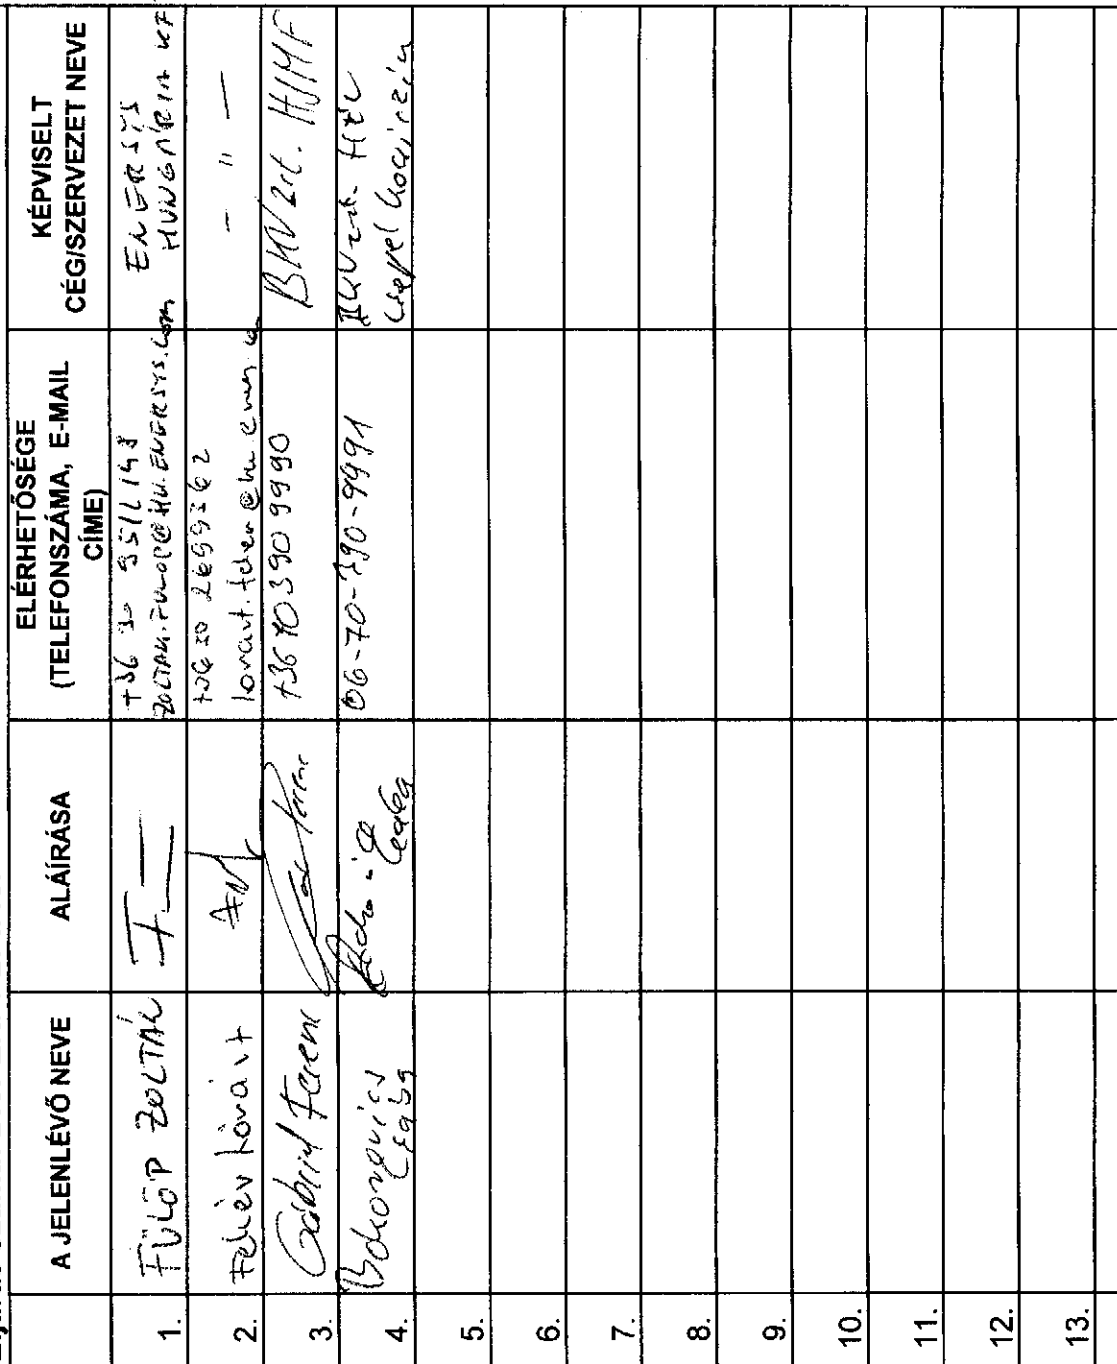 A JELENLÉVŐ NEVE
ALÁÍRÁSA
ELÉRHETŐSÉGE
(TELEFONSZÁMA, E-MAIL
CÍME)
KÉPVISELT
CÉG/SZERVEZET NEVE
1.
FÜLÖP ZOLTÁN
ZOLTAN.FULOP@HU.ENERSYS.com
ENERSYS
HUNGÁRIA KF
2.
Fehér Lóránt
+36 30 2699362
- " -
3.
Gábriel Ferenc
Ferenc
+36703909990
BKV Zrt. HJMF
4.
Csaba
Csaba
06-70-390-9991
BKV zrt. HÉV
Csepel kocsiszín
5.
6.
7.
8.
9.
10.
11.
12.
13.